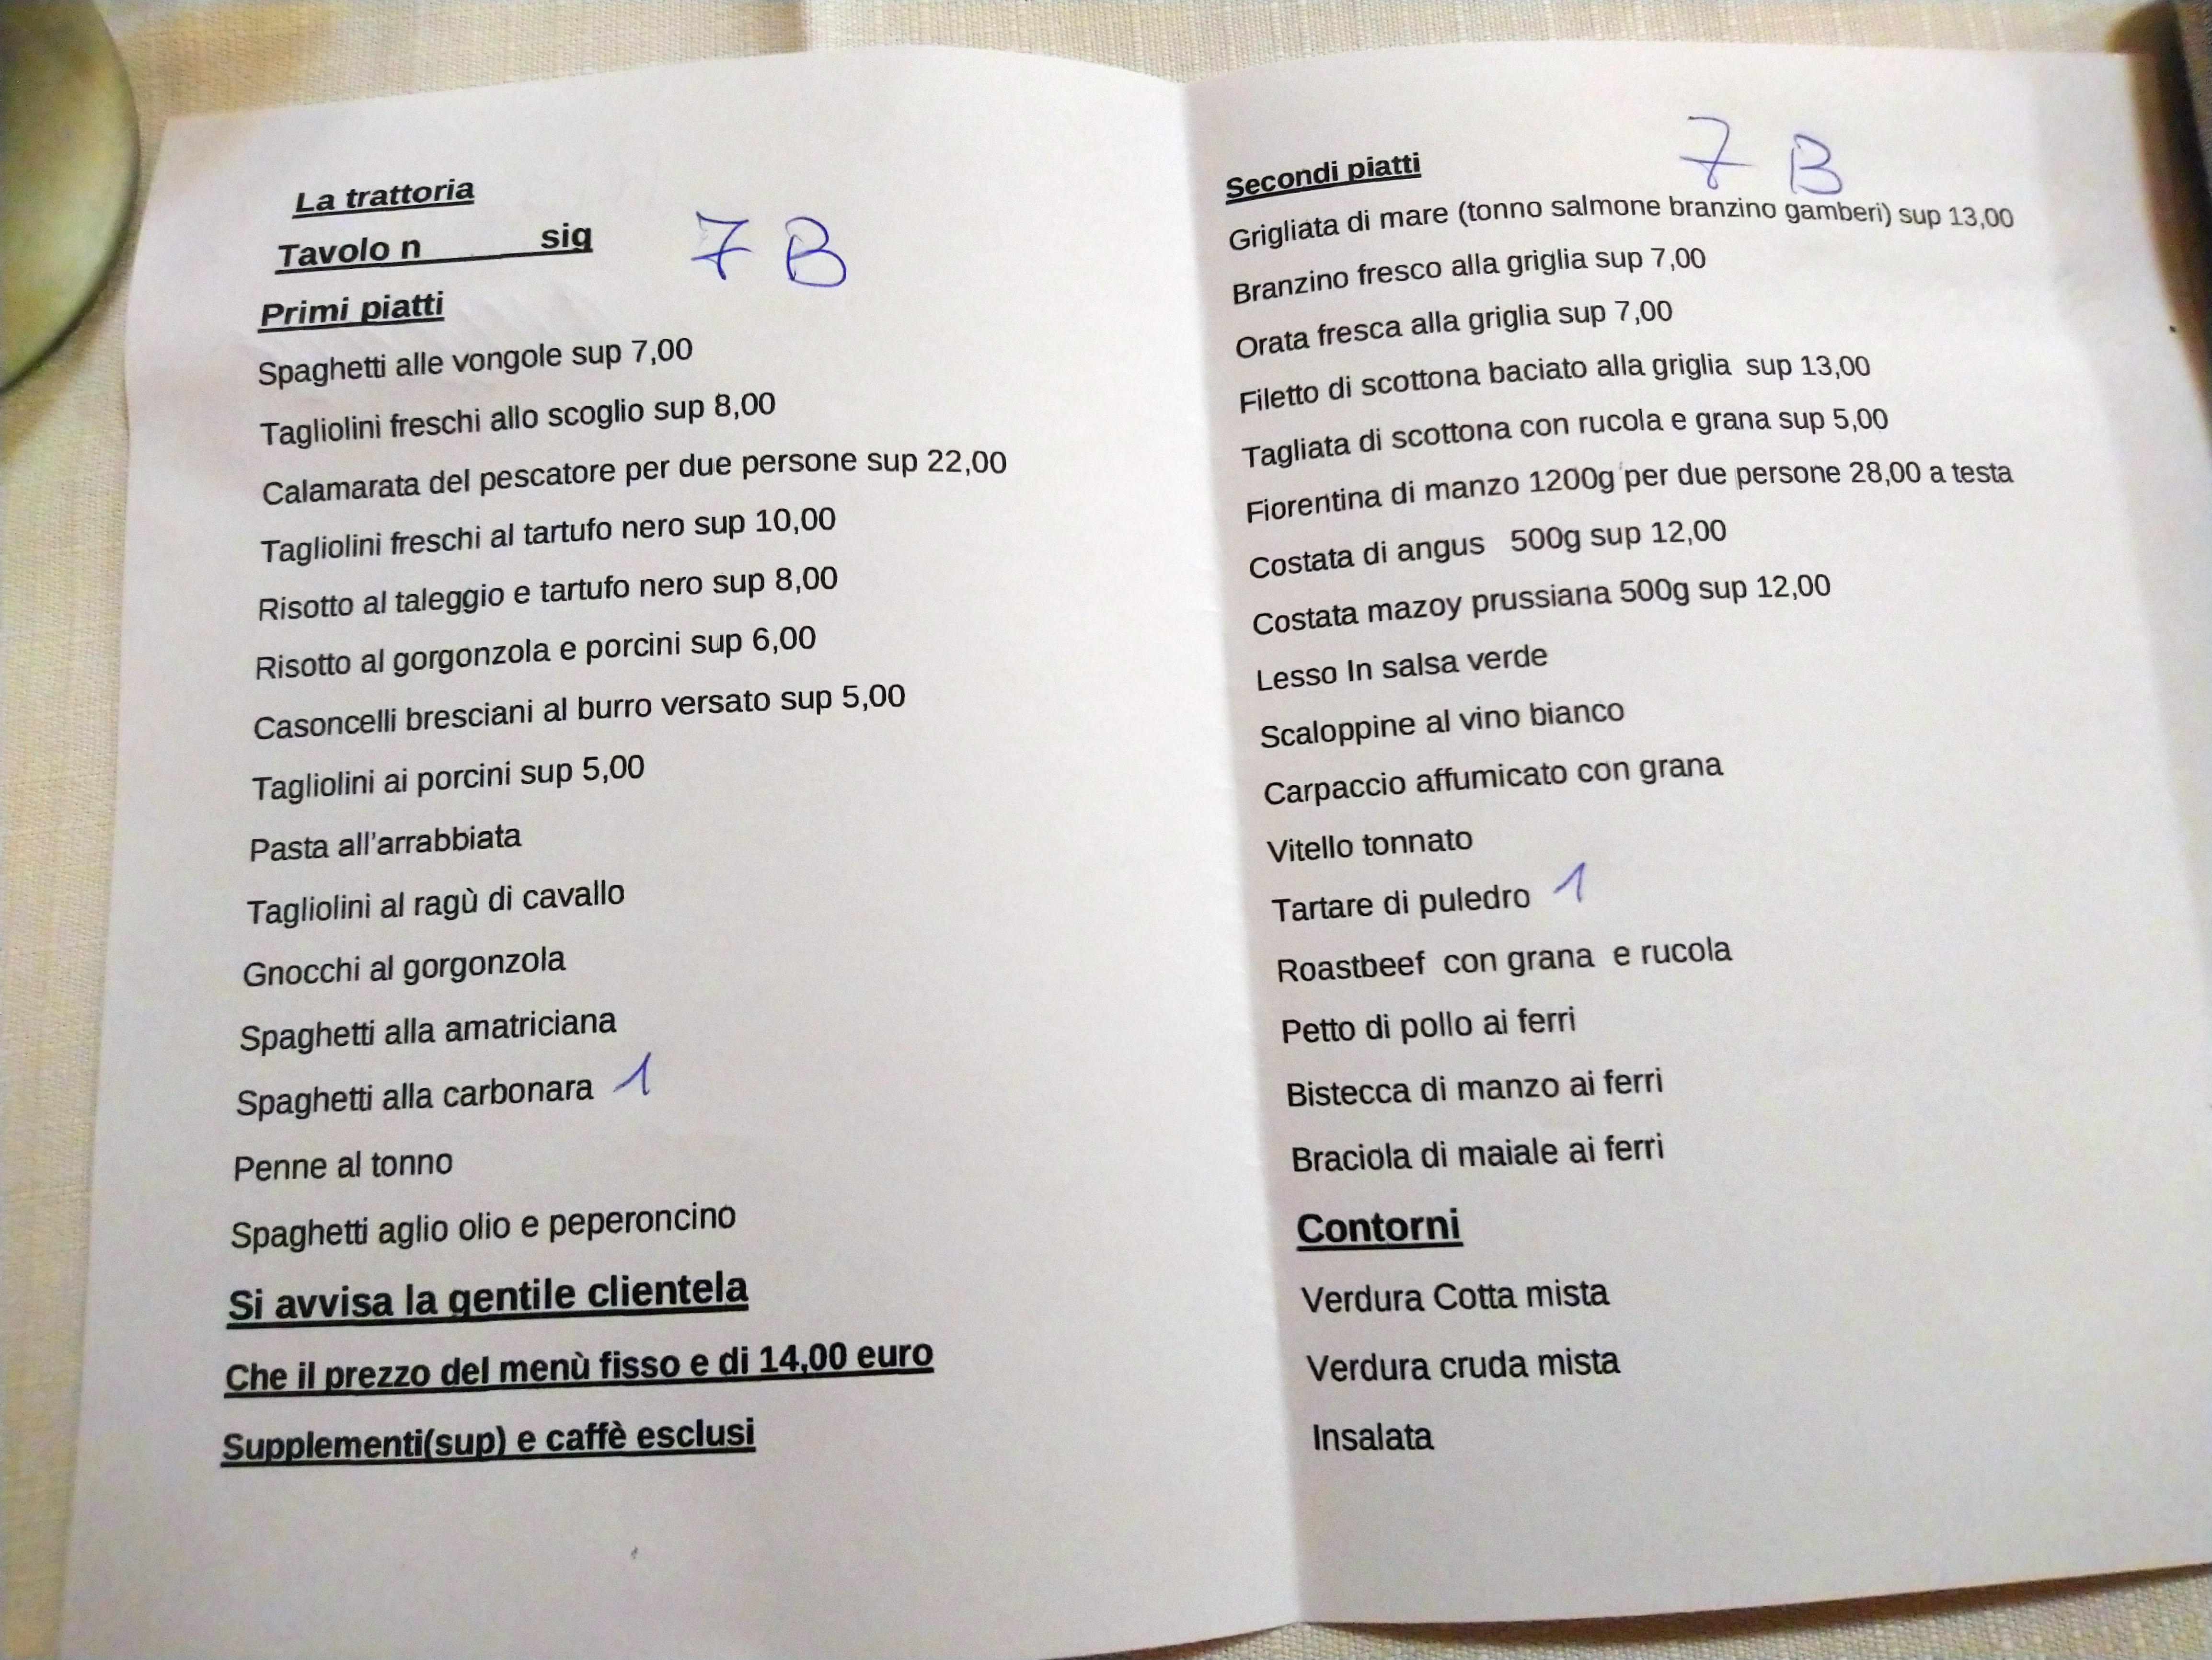 La trattoria
Tavolo n______sig 7 B
Primi piatti
Spaghetti alle vongole sup 7,00
Tagliolini freschi allo scoglio sup 8,00
Calamarata del pescatore per due persone sup 22,00
Tagliolini freschi al tartufo nero sup 10,00
Risotto al taleggio e tartufo nero sup 8,00
Risotto al gorgonzola e porcini sup 6,00
Casoncelli bresciani al burro versato sup 5,00
Tagliolini ai porcini sup 5,00
Pasta all'arrabbiata
Tagliolini al ragù di cavallo
Gnocchi al gorgonzola
Spaghetti alla amatriciana
Spaghetti alla carbonara 1
Penne al tonno
Spaghetti aglio olio e peperoncino
Si avvisa la gentile clientela
Che il prezzo del menù fisso e di 14,00 euro
Supplementi(sup) e caffè esclusi
7 B
Secondi piatti
Grigliata di mare (tonno salmone branzino gamberi) sup 13,00
Branzino fresco alla griglia sup 7,00
Orata fresca alla griglia sup 7,00
Filetto di scottona baciato alla griglia sup 13,00
Tagliata di scottona con rucola e grana sup 5,00
Fiorentina di manzo 1200g per due persone 28,00 a testa
Costata di angus 500g sup 12,00
Costata mazoy prussiana 500g sup 12,00
Lesso In salsa verde
Scaloppine al vino bianco
Carpaccio affumicato con grana
Vitello tonnato
Tartare di puledro 1
Roastbeef con grana e rucola
Petto di pollo ai ferri
Bistecca di manzo ai ferri
Braciola di maiale ai ferri
Contorni
Verdura Cotta mista
Verdura cruda mista
Insalata